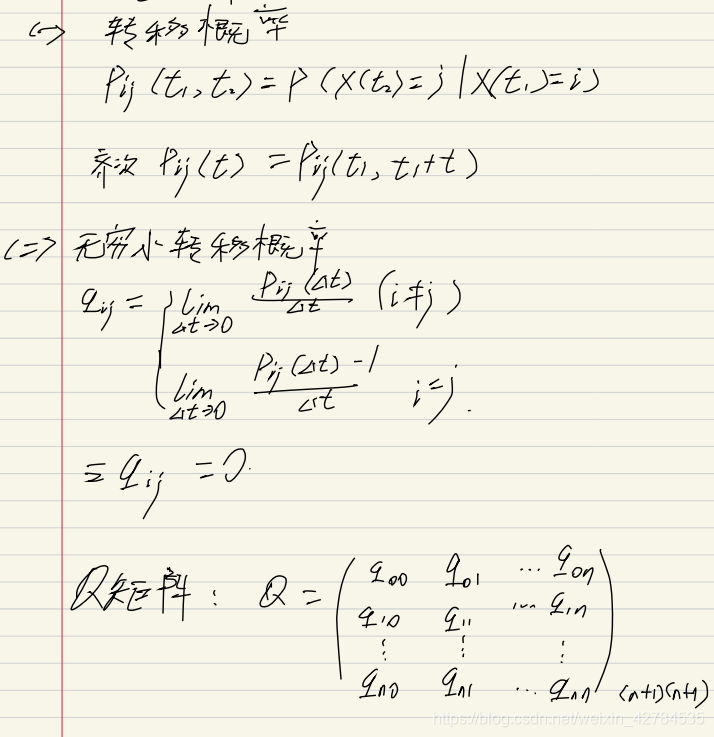 <一> 转移概率
Pij (t₁, t₂) = P (X(t₂)=j | X(t₁)=i)
齐次 Pij(t) = Pij(t₁, t₁+t)
<二> 无穷小转移概率
qij = { lim Δt→0 Pij(Δt)/Δt (i≠j)
lim Δt→0 Pij(Δt)-1/Δt i=j.
Σ qij = 0.
Q矩阵: Q = ( q00 q01 … q0n
q10 q11 … q1n
⋮ ⋮ ⋮
qn0 qn1 … qnn ) (n+1)(n+1)
https://blog.csdn.net/weixin_42784535